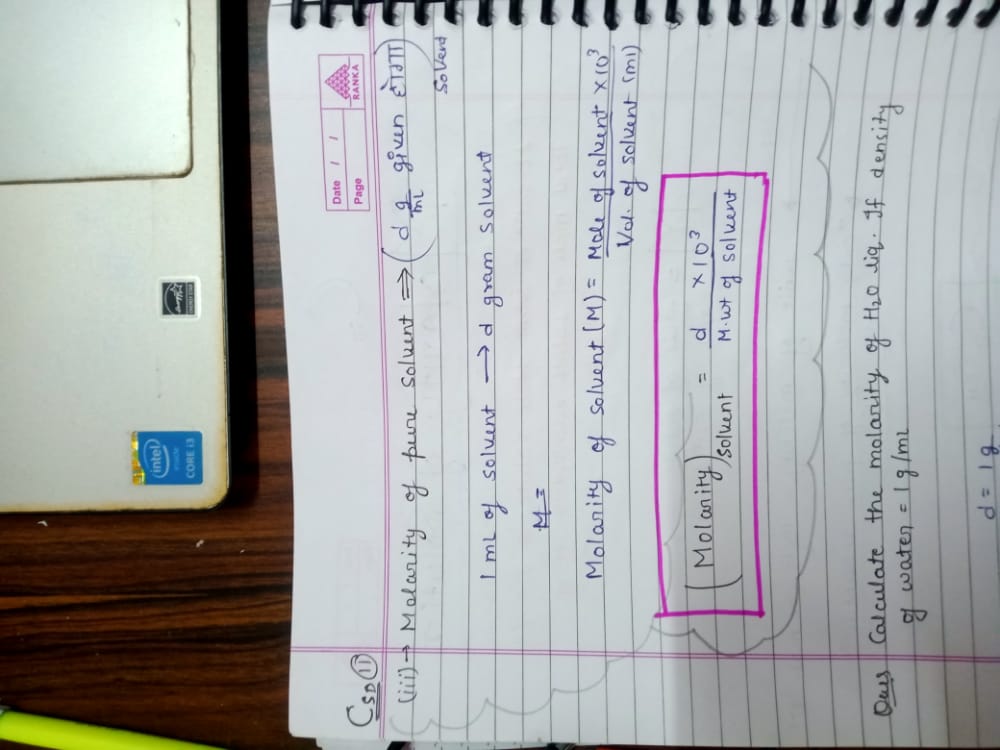 Date / /
Page
RANKA
C SD (11)
(iii) → Molarity of pure solvent ⇒ (d g/ml given होगा)
solvent
1 mL of solvent → d gram solvent
M =
Molarity of solvent (M) = Mole of solvent × 10³ / Vol. of solvent (ml)
(Molarity)solvent = d × 10³ / M.wt of solvent
Ques Calculate the molarity of H₂O liq. If density
of water = 1 g/ml
d = 1 g
intel
inside
CORE i3